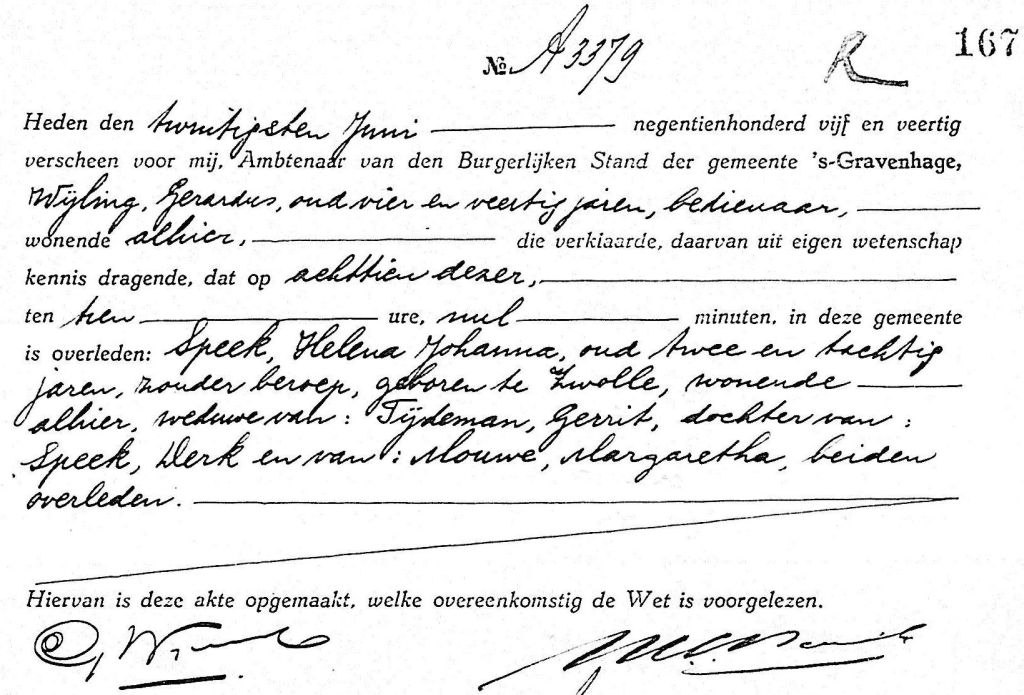 № A3379 R 167
Heden den twintigsten Juni negentienhonderd vijf en veertig
verscheen voor mij, Ambtenaar van den Burgerlijken Stand der gemeente 's-Gravenhage,
Wijling, Gerardus, oud vier en veertig jaren, bedienaar,
wonende alhier, die verklaarde, daarvan uit eigen wetenschap
kennis dragende, dat op achttien dezer,
ten tien ure, nul minuten, in deze gemeente
is overleden: Speek, Helena Johanna, oud twee en tachtig
jaren, zonder beroep, geboren te Zwolle, wonende
alhier, weduwe van: Tijdeman, Gerrit, dochter van:
Speek, Derk en van: Mouwe, Margaretha, beiden
overleden.
Hiervan is deze akte opgemaakt, welke overeenkomstig de Wet is voorgelezen.